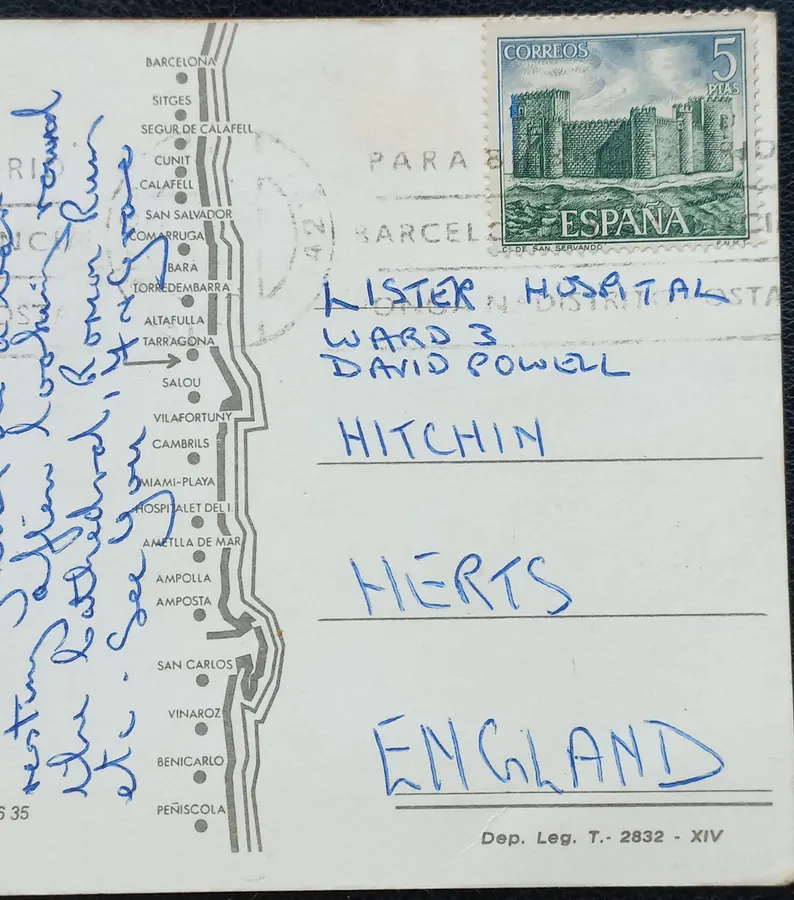 BARCELONA
SITGES
SEGUR DE CALAFELL
CUNIT
CALAFELL
SAN SALVADOR
COMARRUGA
BARA
TORREDEMBARRA
ALTAFULLA
TARRAGONA
SALOU
VILAFORTUNY
CAMBRILS
MIAMI-PLAYA
HOSPITALET DEL I.
AMETLLA DE MAR
AMPOLLA
AMPOSTA
SAN CARLOS
VINAROZ
BENICARLO
PEÑISCOLA
resting after looking round
the Cathedral, Roman Ruin
etc. See you
6 35
CORREOS
5
PTAS
ESPAÑA
C. DE SAN SERVANDO
F.N.M.T.
PARA
BARCEL
DISTRIT
LISTER HOSPITAL
WARD 3
DAVID POWELL
HITCHIN
HERTS
ENGLAND
Dep. Leg. T.- 2832 - XIV